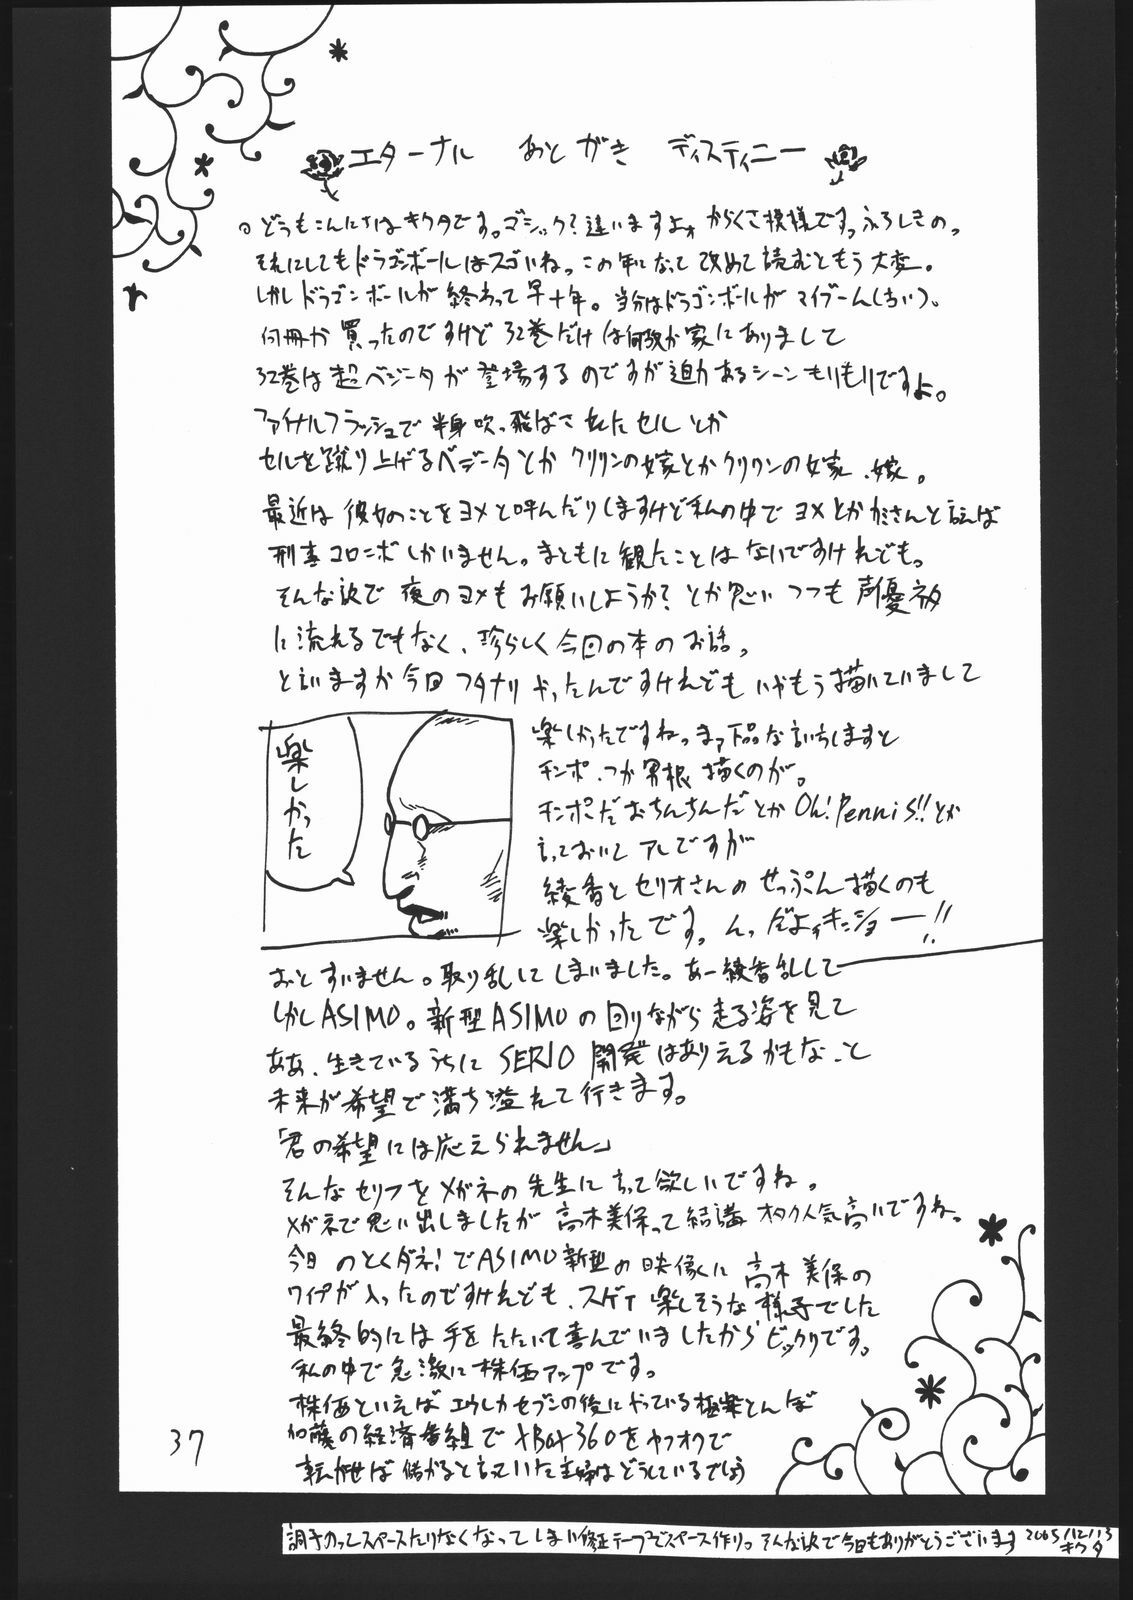 エターナル あとがき ディスティニー
。どうもこんにちはキクタです。ゴシック?違いますよォからくさ模様です。ふろしきの。
それにしてもドラゴンボールはスゴいね。この年になって改めて読むともう大変。
しかしドラゴンボールが終わって早十年。当分はドラゴンボールがマイブーム(古い)。
何冊か買ったのですけど32巻だけは何故か家にありまして
32巻は超ベジータが登場するのですが迫力あるシーンもりもりですよ。
ファイナルフラッシュで半身吹っ飛ばされたセルとか
セルを蹴り上げるベジータとかクリリンの嫁とかクリリンの嫁、嫁。
最近は彼女のことをヨメと呼んだりしますけど私の中でヨメとかカミさんと言えば
刑事コロンボしかいません。まともに観たことはないですけれども。
そんな訳で夜のヨメもお願いしようか?とか思いつつも声優
に流れるでもなく、珍らしく今回の本のお話。
と言いますか今回フタナリやったんですけれどもいやもう描いていまして
楽しかったですね。まァ下品な言いちしますと
チンポ、つか男根描くのが。
チンポだおちんちんだとかOh! Pennis!!とか
言っておいてアレですが
綾香とセリオさんのせっぷん描くのも
楽しかったです。んっだよォキンショー!!
楽しかった
おとすいません。取り乱してしまいました。あー綾香乱して
しかしASIMO。新型ASIMOの回りながら走る姿を見て
ああ、生きているうちにSERIO開発はありえるかもなこと
未来が希望で満ち溢れて行きます。
「君の希望には応えられません」
そんなセリフをメガネの先生に言って欲しいですね。
メガネで思い出しましたが高木美保って結講オタク人気高いですね。
今日のとくダネ!でASIMO新型の映像に高木美保の
ワイプが入ったのですけれども、スゲェ楽しそうな様子でした
最終的には手をたたいて喜んでいましたからビックリです。
私の中で急激に株価アップです。
株価といえばエウレカセブンの後にやっている極楽とんぼ
加藤の経済番組でXBOX360をヤフオクで
転がせば儲かると言っていた主婦はどうしているでしょう
37
調子のってスペースたりなくなってしまい修正テープでスペース作り。そんな訳で今回もありがとうございます 2005/12/13
キクタ